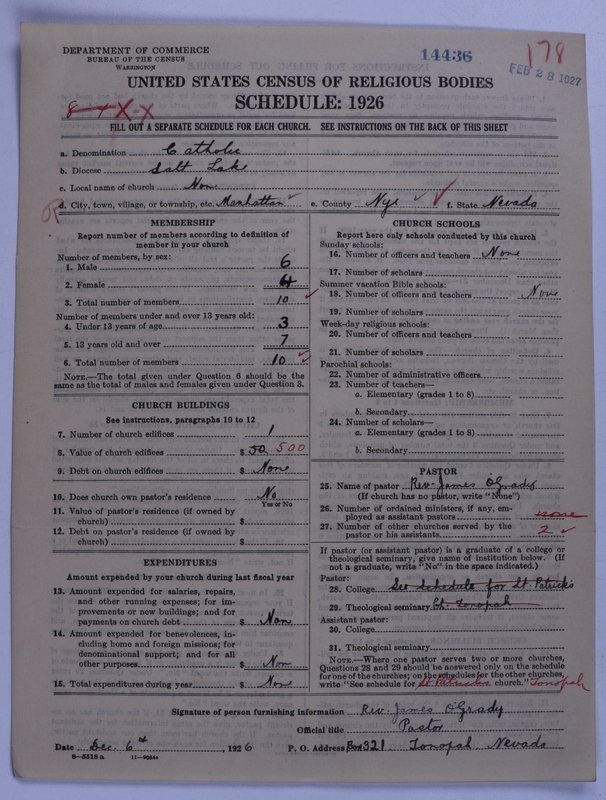 DEPARTMENT OF COMMERCE
BUREAU OF THE CENSUS
WASHINGTON
14436
178
FEB 28 1927
UNITED STATES CENSUS OF RELIGIOUS BODIES
SCHEDULE: 1926
8-4 X-X
FILL OUT A SEPARATE SCHEDULE FOR EACH CHURCH. SEE INSTRUCTIONS ON THE BACK OF THIS SHEET
a. Denomination Catholic
b. Diocese Salt Lake
c. Local name of church Non
d. City, town, village, or township, etc. Manhattan e. County Nye f. State Nevada
MEMBERSHIP
Report number of members according to definition of
member in your church
Number of members, by sex:
1. Male 6
2. Female 4
3. Total number of members 10
Number of members under and over 13 years old:
4. Under 13 years of age 3
5. 13 years old and over 7
6. Total number of members 10
NOTE.—The total given under Question 6 should be the
same as the total of males and females given under Question 3.
CHURCH BUILDINGS
See instructions, paragraphs 10 to 12
7. Number of church edifices 1
8. Value of church edifices $ 50 500
9. Debt on church edifices $ None
10. Does church own pastor's residence No
Yes or No
11. Value of pastor's residence (if owned by
church) $
12. Debt on pastor's residence (if owned by
church) $
EXPENDITURES
Amount expended by your church during last fiscal year
13. Amount expended for salaries, repairs,
and other running expenses; for im-
provements or new buildings; and for
payments on church debt $ Non
14. Amount expended for benevolences, in-
cluding home and foreign missions; for
denominational support; and for all
other purposes $ Non
15. Total expenditures during year $ None
CHURCH SCHOOLS
Report here only schools conducted by this church
Sunday schools:
16. Number of officers and teachers None
17. Number of scholars
Summer vacation Bible schools:
18. Number of officers and teachers None
19. Number of scholars
Week-day religious schools:
20. Number of officers and teachers
21. Number of scholars
Parochial schools:
22. Number of administrative officers
23. Number of teachers—
a. Elementary (grades 1 to 8)
b. Secondary
24. Number of scholars—
a. Elementary (grades 1 to 8)
b. Secondary
PASTOR
25. Name of pastor Rev. James O'Grady
(If church has no pastor, write "None")
26. Number of ordained ministers, if any, em-
ployed as assistant pastors none
27. Number of other churches served by the
pastor or his assistants 2
If pastor (or assistant pastor) is a graduate of a college or
theological seminary, give name of institution below. (If
not a graduate, write "No" in the space indicated.)
Pastor:
28. College See Schedule for St Patricks
29. Theological seminary Ch. Tonopah
Assistant pastor:
30. College
31. Theological seminary
NOTE.—Where one pastor serves two or more churches,
Questions 28 and 29 should be answered only on the schedule
for one of the churches; on the schedules for the other churches,
write "See schedule for St Patricks church." Tonopah
Signature of person furnishing information Rev. James O'Grady
Official title Pastor
Date Dec. 6th, 1926 P. O. Address Box 321 Tonopah Nevada
8—5518 a